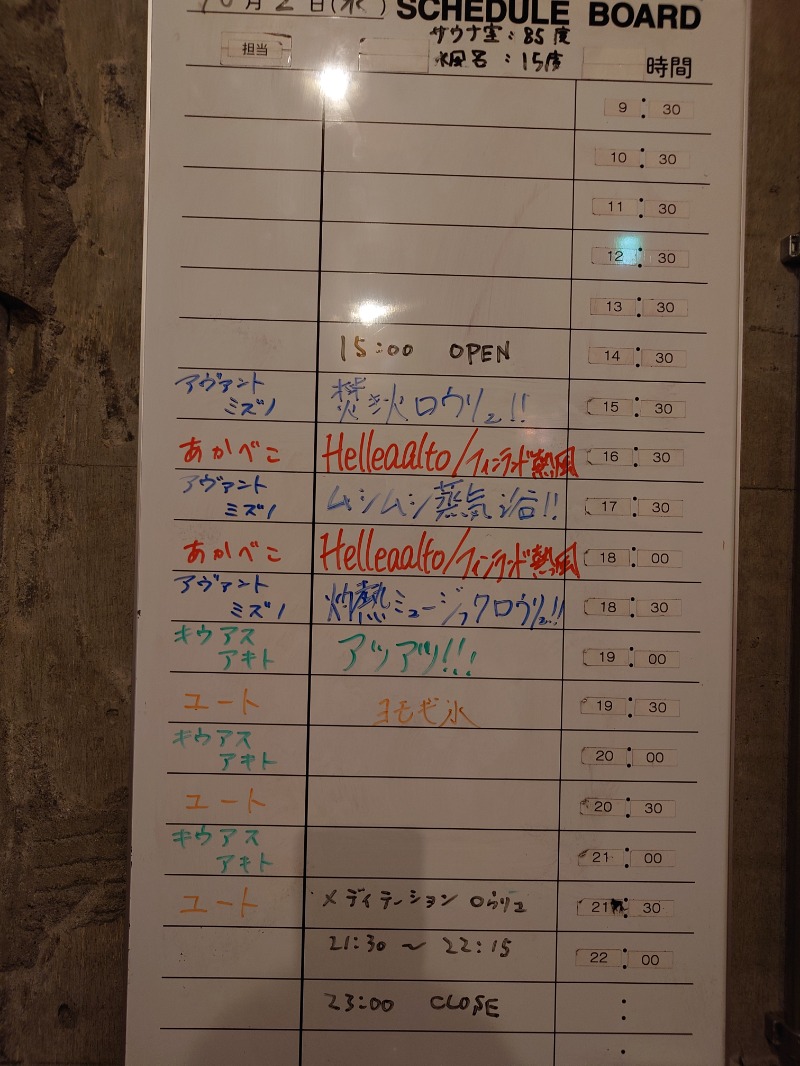 10月2日(水) SCHEDULE BOARD
サウナ室：85度
担当 水風呂：15度 時間
9:30
10:30
11:30
12:30
13:30
15:00 OPEN 14:30
アヴァント
ミズノ 焚き火ロウリュ!! 15:30
あかべこ Helleaalto/フィンランド熱風 16:30
アヴァント
ミズノ ムシムシ蒸気浴!! 17:30
あかべこ Helleaalto/フィンランド熱風 18:00
アヴァント
ミズノ 灼熱ミュージックロウリュ!! 18:30
キウアス
アキト アツアツ!!! 19:00
ユート ヨモギ氷 19:30
キウアス
アキト 20:00
ユート 20:30
キウアス
アキト 21:00
ユート メディテーション ロウリュ 21:30
21:30 〜 22:15 22:00
23:00 CLOSE :